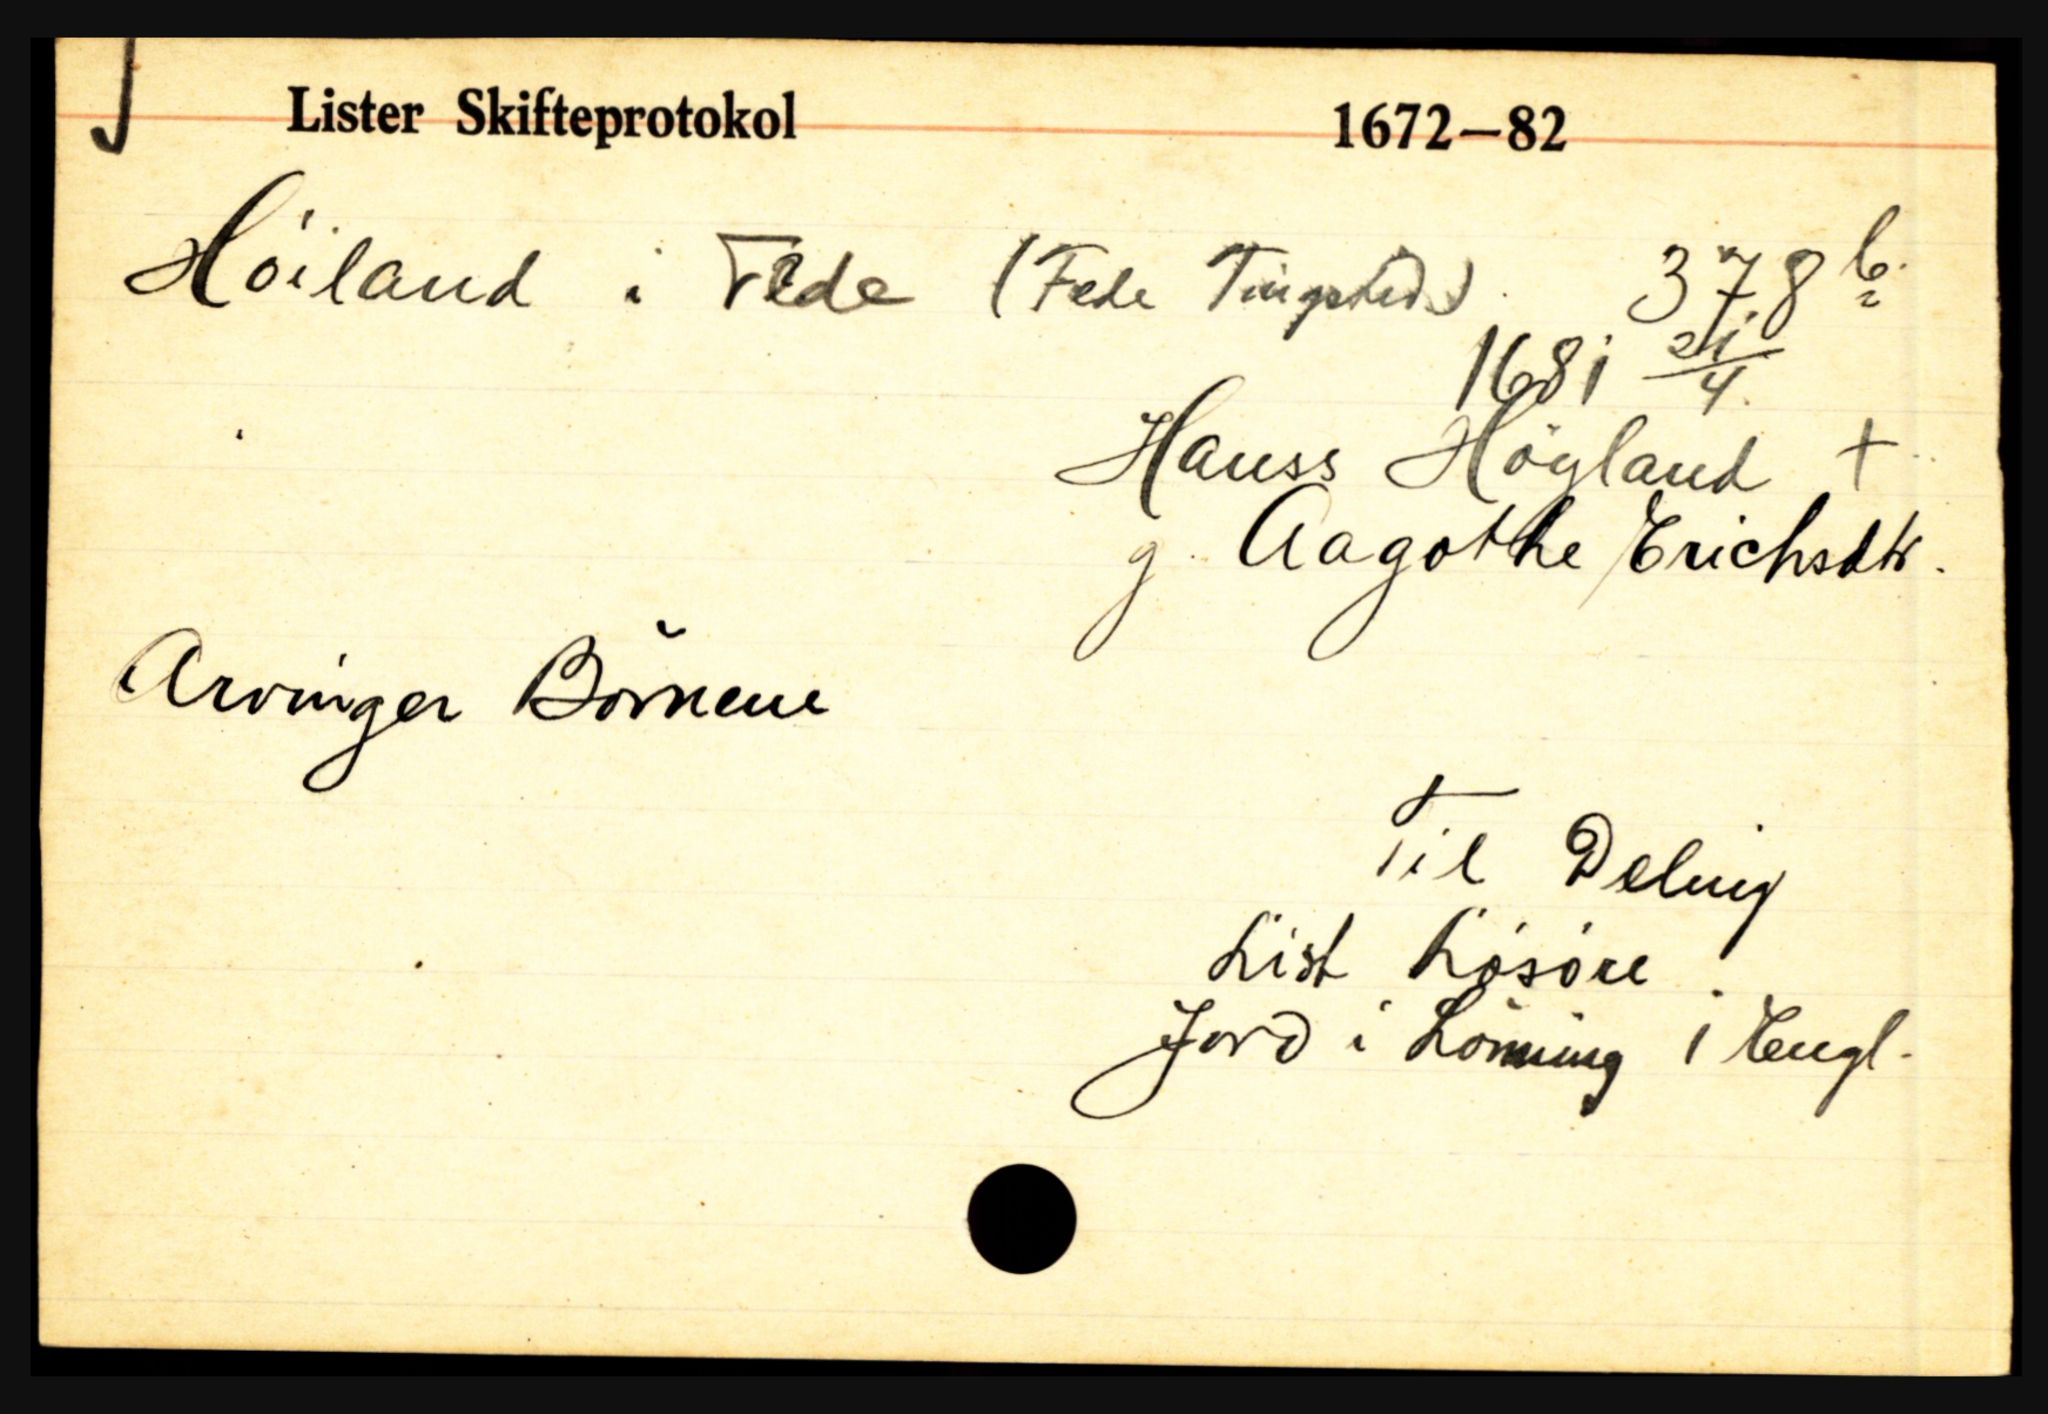 Lister Skifteprotokol 1672—82
Höiland i Fede (Fede Tingsted) 378 b.
1681 21/4.
Hanss Höyland +
g. Aagothe Erichsdtr.
Arvinger Börnene
Til Deling
List Lösöre
Jord i Lönning i Engl.